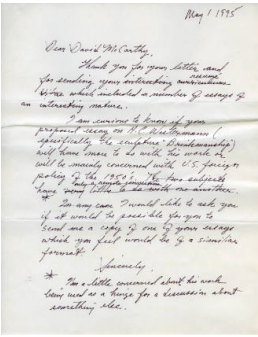 May 1 1995
Dear David McCarthy,
Thank you for your letter and
for sending your interesting resume
vitae which included a number of essays of
an interesting nature.
I am curious to know if your
proposed essay on H.C. Westermann (
specifically the sculpture "Brinkmanship)
will have more to do with his work or
will be mainly concerned with U.S. foreign
policy of the 1950's. The two subjects
have only a remote connection with one another.*
In any case I would like to ask you
if it would be possible for you to
send me a copy of one of your essays
which you feel would be of a similar
format.
Sincerely,
* I'm a little concerned about his work
being used as a hinge for a discussion about
something else.